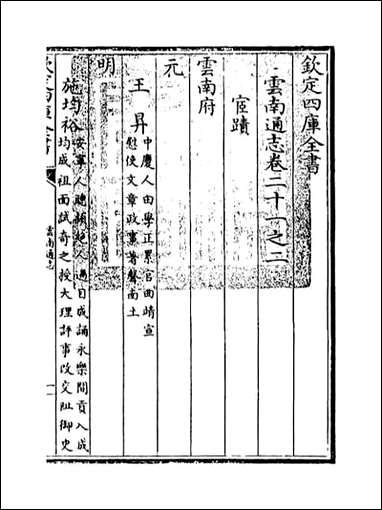 欽定四庫全書
雲南通志卷二十一之二
宦蹟
雲南府
元
王昇
中慶人由學正累官曲靖宣
慰使文章政事著聲南土
明
施均裕
安寧人聰穎絶人過目成誦永樂間貢入成
均成祖面試奇之授大理評事改交阯御史
雲南通志